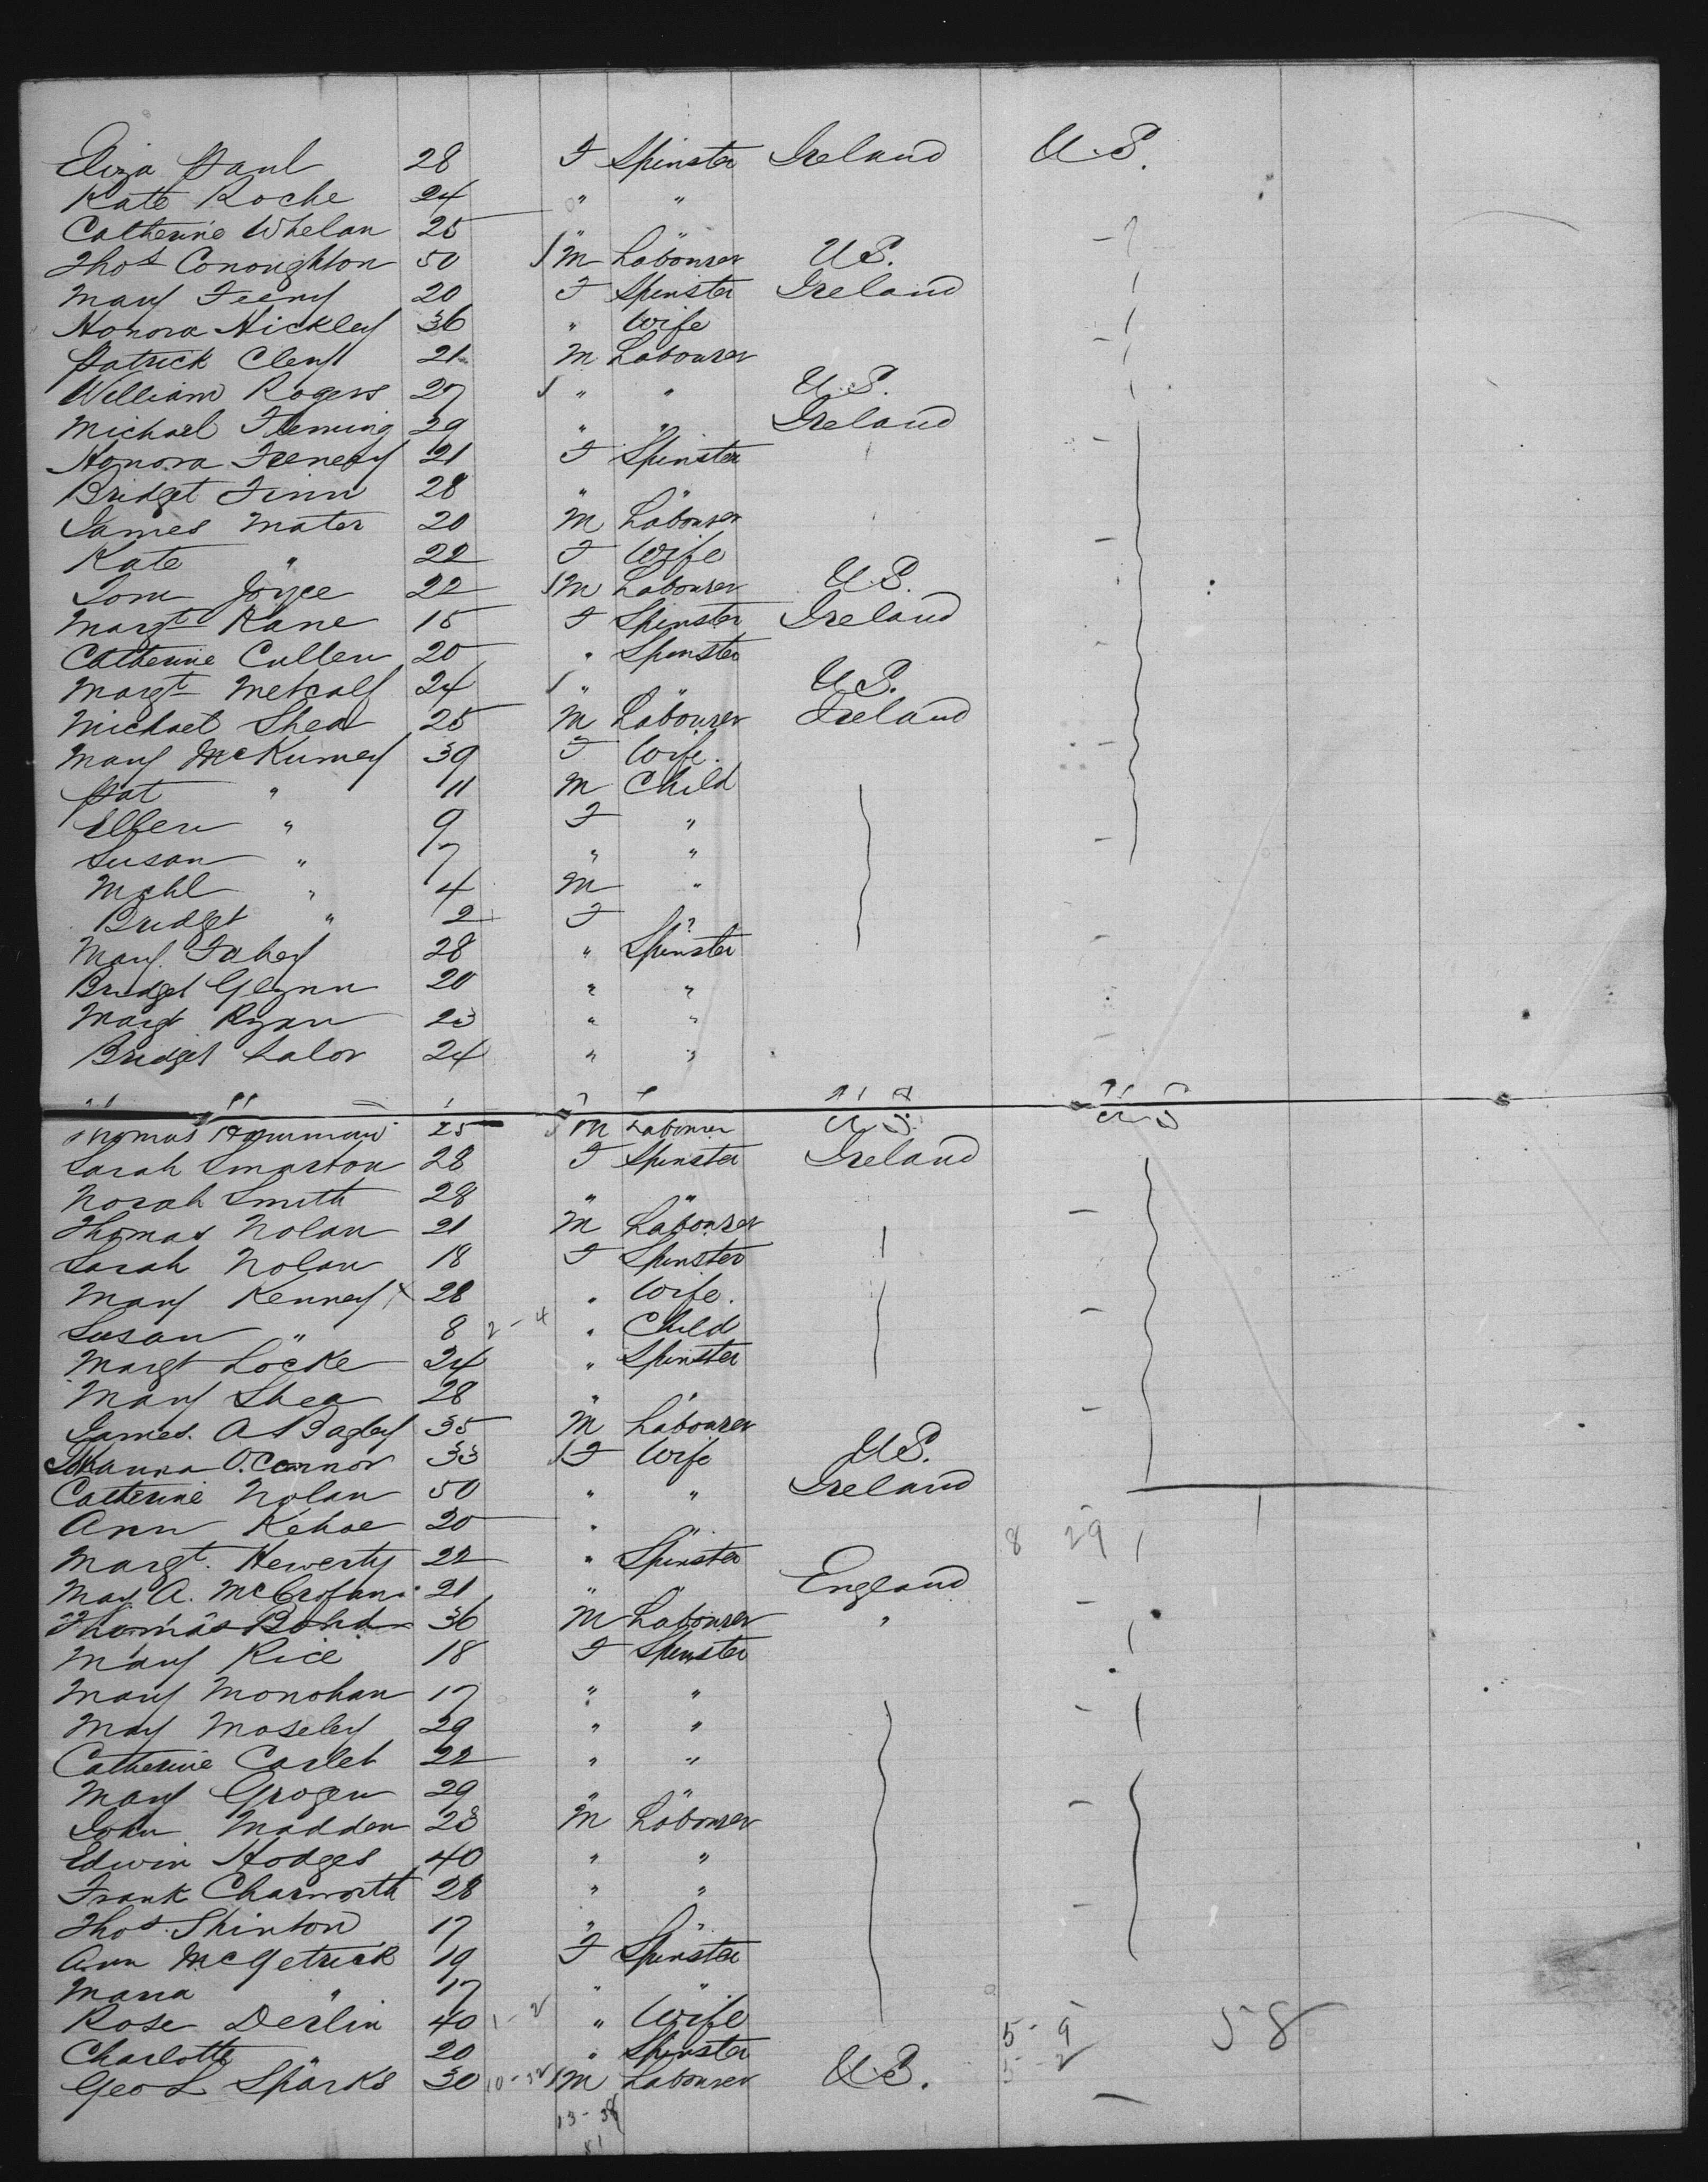 Eliza Paul 28 F Spinster Ireland U.S.
Kate Roche 24 " "
Catherine Whelan 25 " "
Thos Conoughton 50 M Labourer U.S.
Mary Feeny 20 F Spinster Ireland
Honora Hickley 36 " Wife
Patrick Cleny 21 M Labourer
William Rogers 27 " " U.S.
Michael Fleming 29 " " Ireland
Honora 21 F Spinster
Bridget Finn 28 " "
James Mater 20 M Labourer
Kate " 22 F Wife
Tom Joyce 22 M Labourer U.S.
Margt Kane 15 F Spinster Ireland
Catherine Cullen 20 " Spinster
Margt Metcalf 24 " " U.S.
Michael Shea 25 M Labourer Ireland
Mary McKumey 39 F Wife.
Pat " 11 M Child
Ellen " 9 F "
Susan " 7 " "
Mchl " 4 M "
Bridget " 2 F "
Mary Fahey 28 " Spinster
Bridget Glynn 20 " "
Margt Ryan 23 " "
Bridget Lalor 24 " "
Thomas 25 M Labourer U.S. U.S
Sarah Smarton 28 F Spinster Ireland
Norah Smith 28 " "
Thomas Nolan 21 M Labourer
Sarah Nolan 18 F Spinster
Mary Kenney 28 " Wife.
Susan " 8 2-4 " Child
Margt Locke 24 " Spinster
Mary Shea 28 " "
James. A Bagley 35 M Labourer
Johanna O.Connor 33 F Wife U.S.
Catherine Nolan 50 " " Ireland
Ann Kehoe 20 " "
Margt. Hewerty 22 " Spinster 8 29
May A. 21 " " England
Thomas Bond 36 M Labourer "
Mary Rice 18 F Spinster
Mary Monohan 17 " "
May Moseley 29 " "
Catherine Carlet 22 " "
Mary Grogen 29 " "
John Madden 23 M Labourer
Edwin Hodges 40 " "
Frank Charworth 28 " "
Thos. Shinton 17 " "
Ann McGetrick 19 F Spinster
Maria " 17 " "
Rose Derlin 40 1-2 " Wife 5-9 58
Charlotte " 20 " Spinster 5-2
Geo L Sparks 30 10-32 M Labourer U.S.
13-38